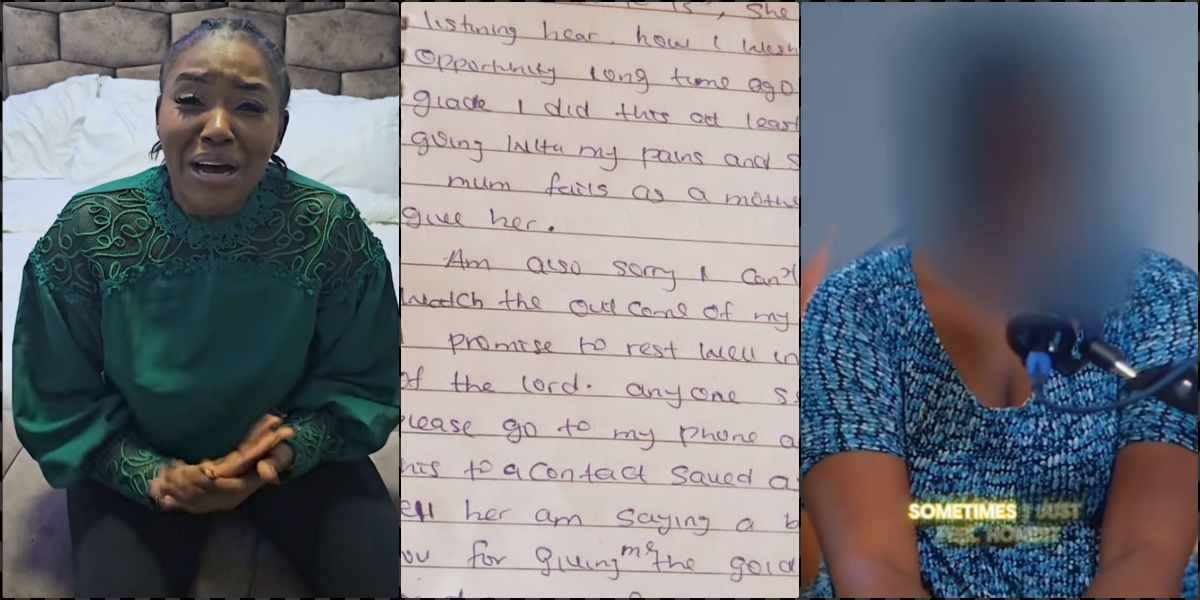 is, she
listining hear. how I wish
opportunity long time ago
glade I did this at least
going with my pains and s
mum fails as a mothe
give her.
Am also sorry I can't
watch the out come of my
promise to rest well in
of the lord. anyone s
lease go to my phone a
his to a contact saved a
ell her am saying a b
ou for giving me the gold
SOMETIMES I JUST